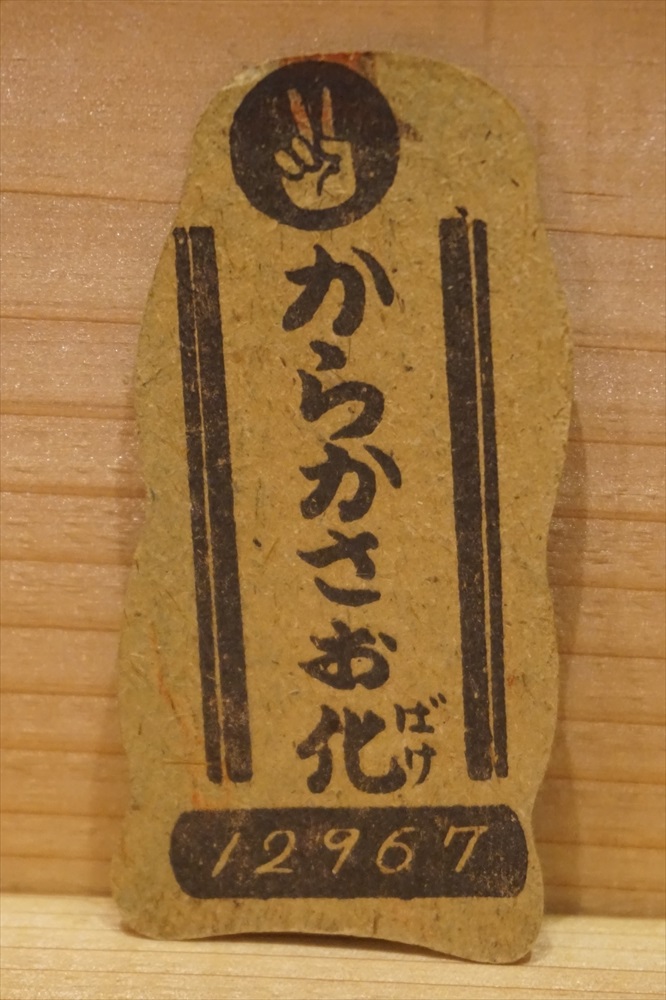 からかさお化
ばけ
12967